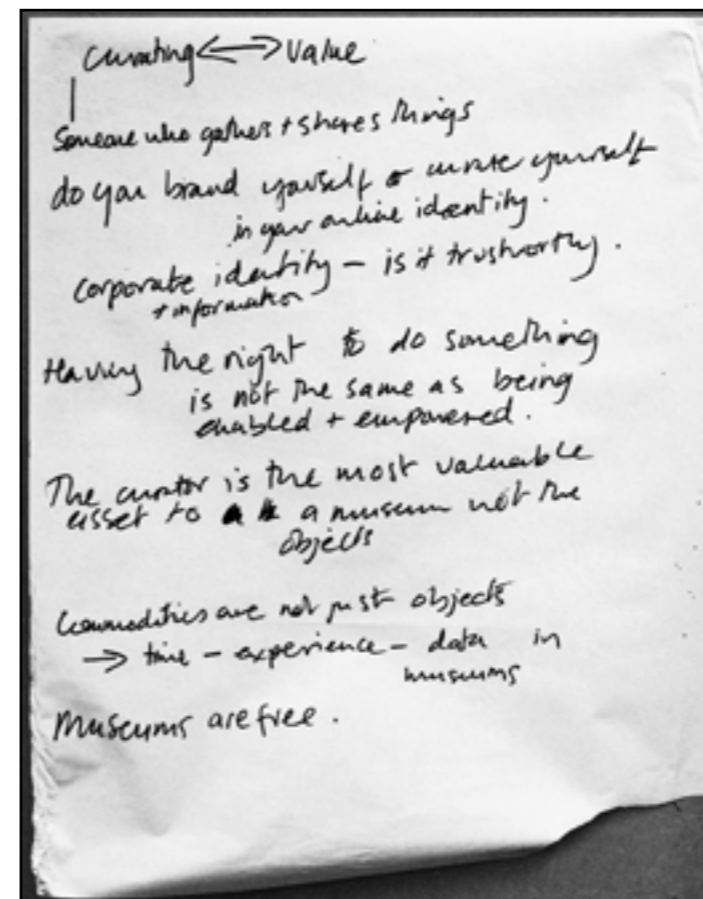 Curating <-> Value
Someone who gathers + shares things
do you brand yourself or curate yourself
in your online identity.
Corporate identity - is it trustworthy.
+ information
Having the right to do something
is not the same as being
enabled + empowered.
The curator is the most valuable
asset to a museum not the
objects
Commodities are not just objects
-> time - experience - data in
museums
Museums are free.